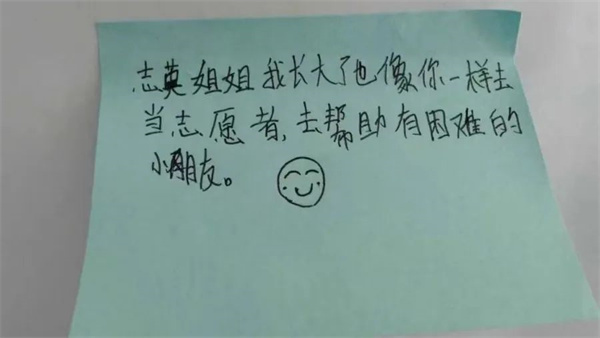 志英姐姐我长大了也像你一样去
当志愿者,去帮助有困难的
小朋友。